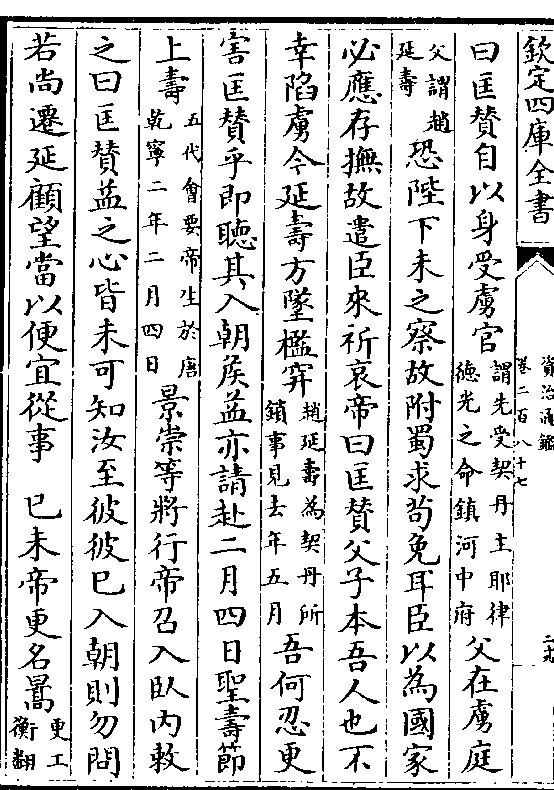 欽定四庫全書
資治通鑑
卷二百八十七
曰匡賛自以身受虜官謂先受契丹主耶律德光之命鎮河中府父在虜庭
父謂趙延壽恐陛下未之察故附蜀求茍免耳臣以為國家
必應存撫故遣臣來祈哀帝曰匡賛父子本吾人也不
幸陷虜今延壽方墜檻穽趙延壽為契丹所鎖事見去年五月吾何忍更
害匡賛乎即聽其入朝侯益亦請赴二月四日聖壽節
上壽五代會要帝生於唐乾寧二年二月四日景崇等將行帝召入臥内敕
之曰匡賛益之心皆未可知汝至彼彼已入朝則勿問
若尚遷延顧望當以便宜從事　已未帝更名暠更工衡翻